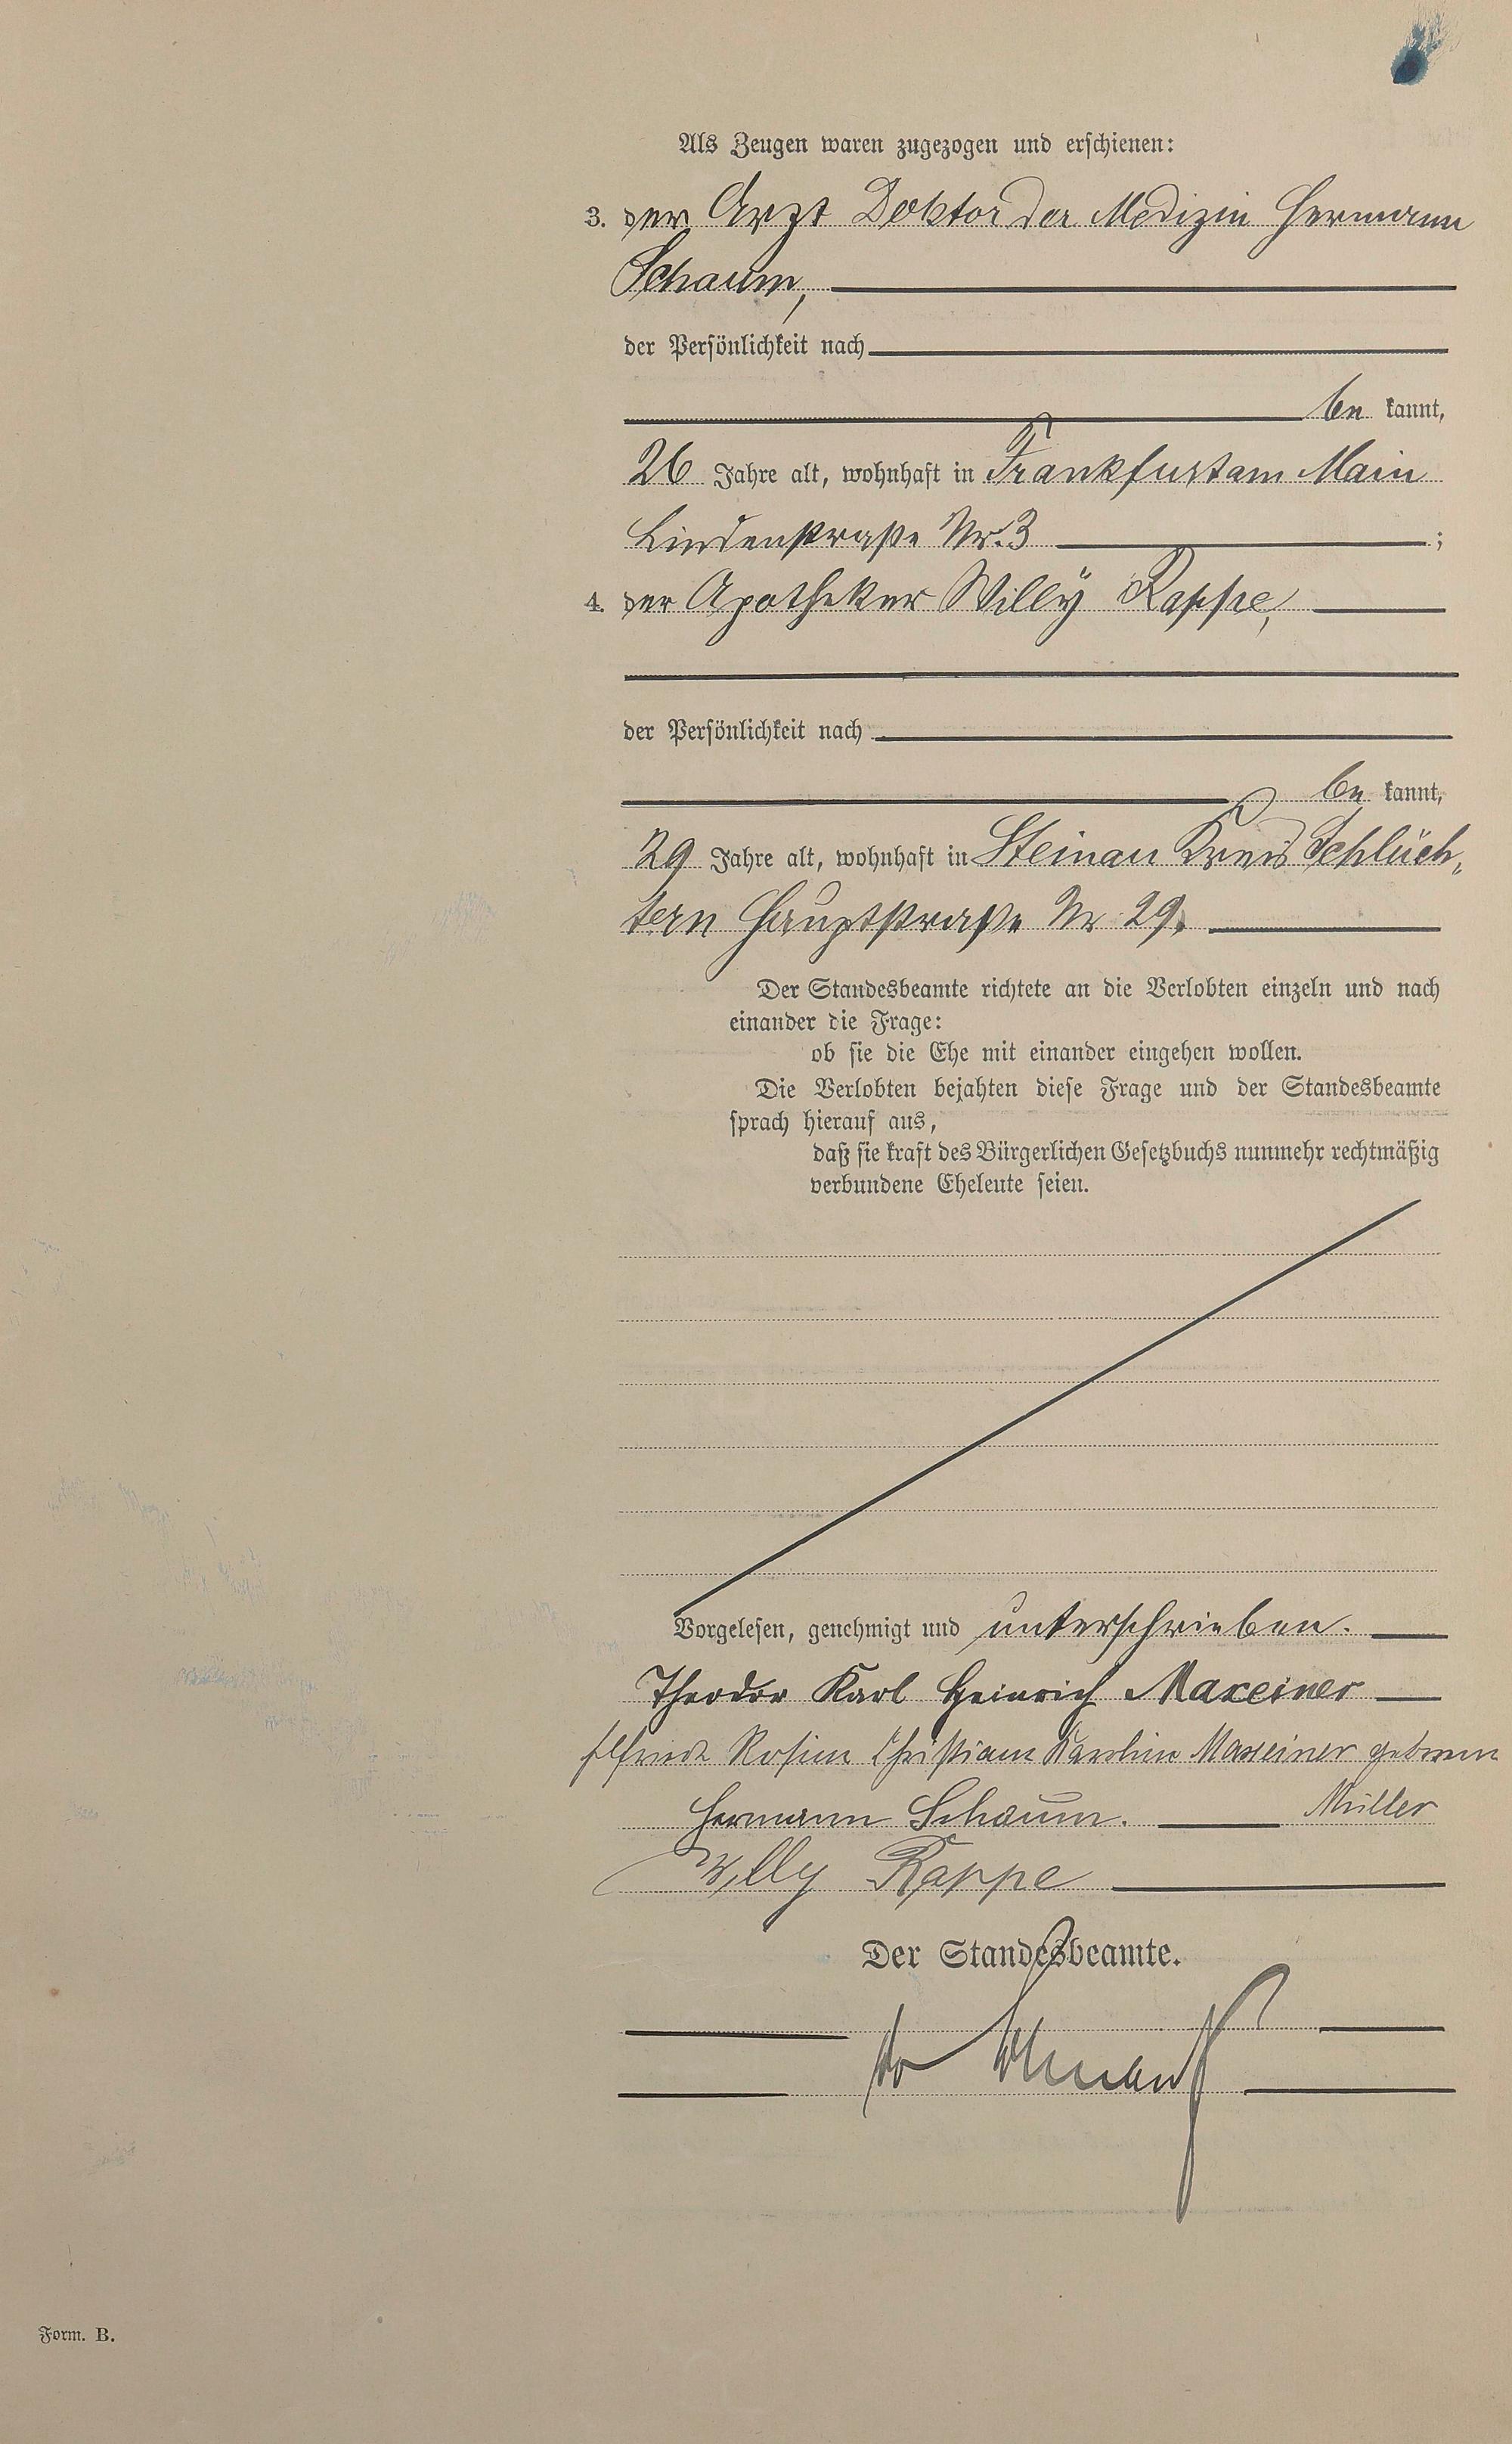 Als Zeugen waren zugezogen und erschienen:
3. der Arzt Doktor der Medizin Hermann
Schaum,
der Persönlichkeit nach
be kannt,
26 Jahre alt, wohnhaft in Frankfurt am Main
Lindenstraße Nr. 3 ;
4. der Apotheker Willy Rappe,
der Persönlichkeit nach
be kannt,
29 Jahre alt, wohnhaft in Steinau Kreis Schlüch-
tern Hauptstraße Nr. 29.
Der Standesbeamte richtete an die Verlobten einzeln und nach
einander die Frage:
ob sie die Ehe mit einander eingehen wollen.
Die Verlobten bejahten diese Frage und der Standesbeamte
sprach hierauf aus,
daß sie kraft des Bürgerlichen Gesetzbuchs nunmehr rechtmäßig
verbundene Eheleute seien.
Vorgelesen, genehmigt und unterschrieben.
Theodor Karl Heinrich Maxeiner
Elfriede Rosine Christiane Karoline Maxeiner geborene
Hermann Schaum. Müller
Willy Rappe
Der Standesbeamte.
Form. B.